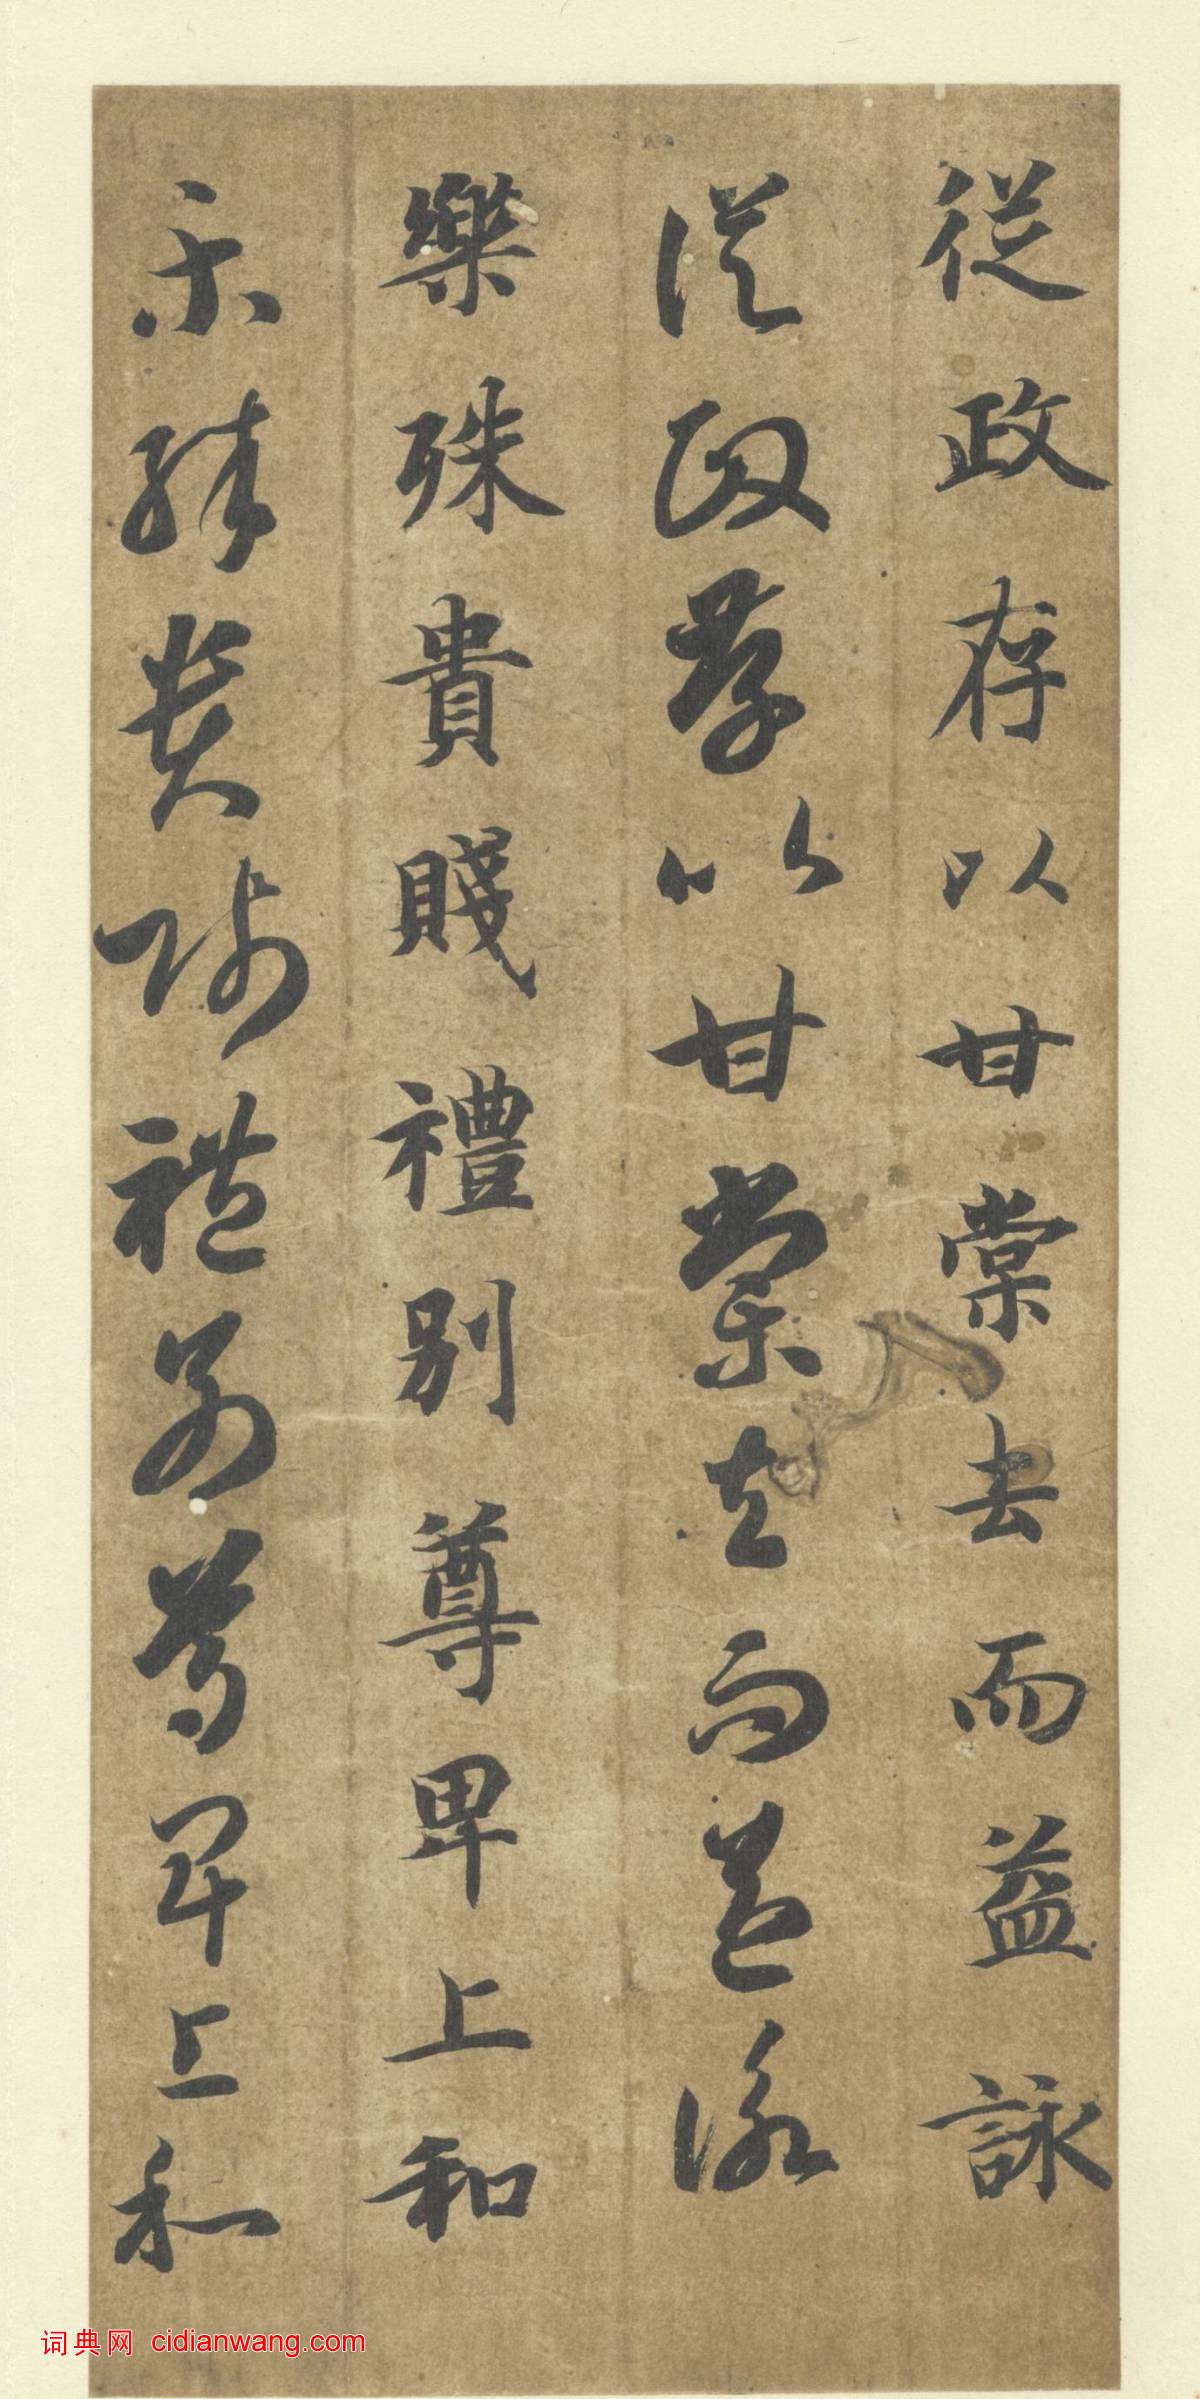 從政存以甘棠去而益詠
從政存以甘棠去而益詠
樂殊貴賤禮別尊卑上和
樂殊貴賤禮別尊卑上和
词典网 cidianwang.com